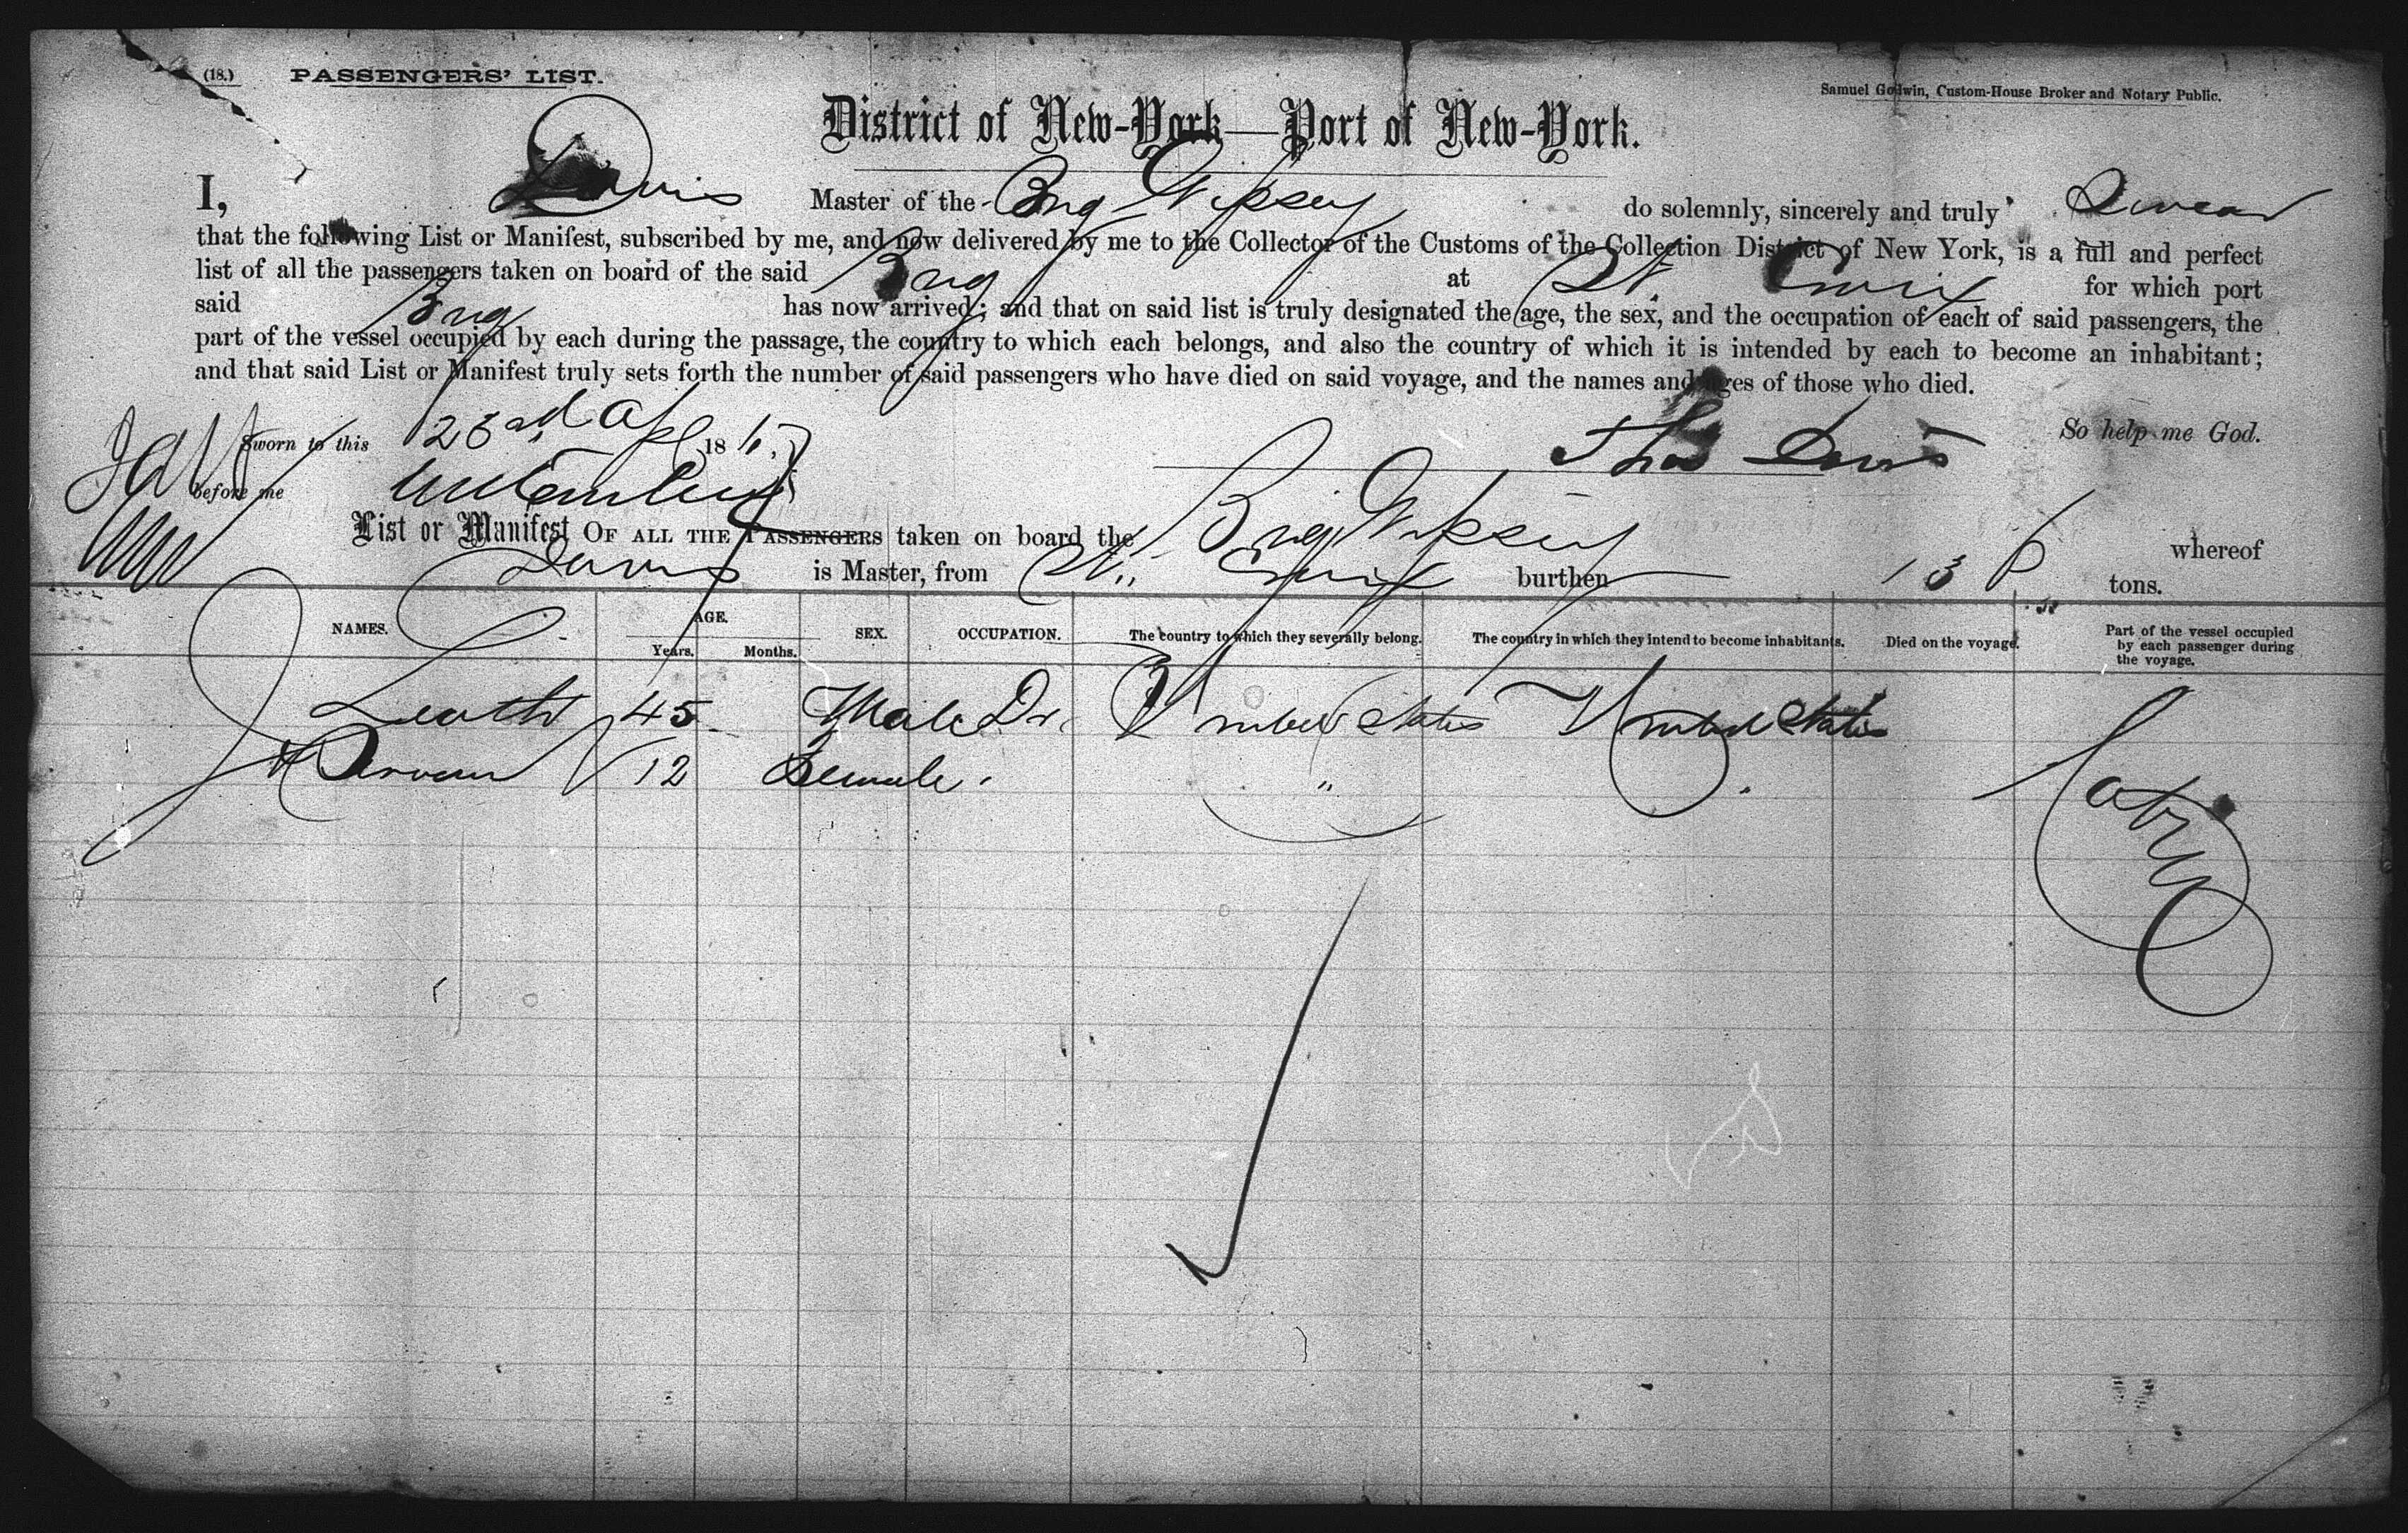 (18.) PASSENGERS' LIST.
Samuel Godwin, Custom-House Broker and Notary Public.
District of New-York—Port of New-York.
I, Davis Master of the Brig Gipsey do solemnly, sincerely and truly Swear
that the following List or Manifest, subscribed by me, and now delivered by me to the Collector of the Customs of the Collection District of New York, is a full and perfect
list of all the passengers taken on board of the said Brig at St Croix for which port
said Brig has now arrived; and that on said list is truly designated the age, the sex, and the occupation of each of said passengers, the
part of the vessel occupied by each during the passage, the country to which each belongs, and also the country of which it is intended by each to become an inhabitant;
and that said List or Manifest truly sets forth the number of said passengers who have died on said voyage, and the names and ages of those who died.
Sworn to this 23rd Apl 186 Thos Davis So help me God.
before me
List or Manifest OF ALL THE PASSENGERS taken on board the Brig Gipsey whereof
Davis is Master, from St. Croix burthen 136 tons.
NAMES. AGE. Years. Months. SEX. OCCUPATION. The country to which they severally belong. The country in which they intend to become inhabitants. Died on the voyage. Part of the vessel occupied by each passenger during the voyage.
J Leath 45 Male Dr United States United States
& Servant 12 Female " Cabin